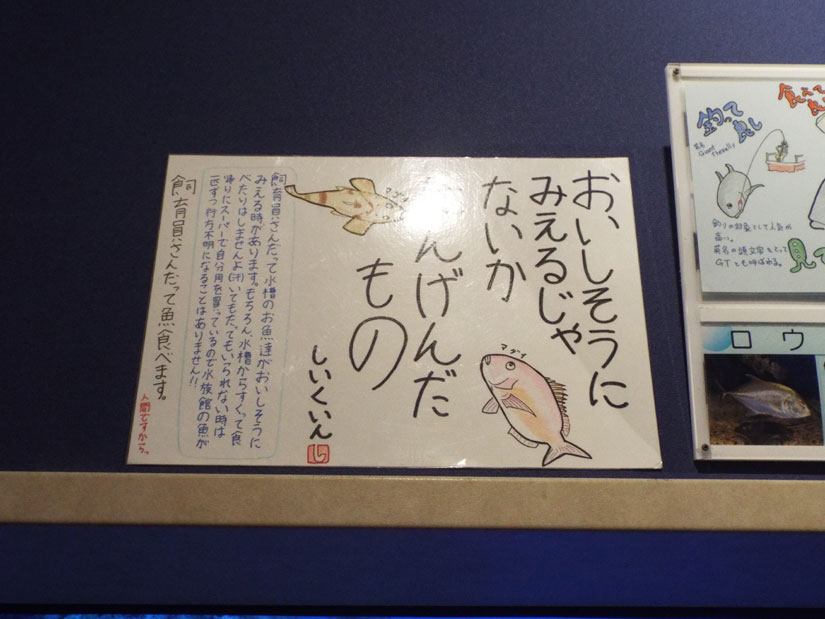 おいしそうに
みえるじゃ
ないか
にんげんだ
もの
しいくいん
マダイ
飼育員さんだって水槽のお魚達がおいしそうに
みえる時があります。もちろん、水槽からすくって食
べたりはしませんよ(汗)いてもたってもいられない時は
帰りにスーパーで自分用を買っているので水族館の魚が
一匹ずつ行方不明になることはありません!!
飼育員さんだって魚食べます。
人間ですから。
釣って良し
英名
Giant Trevally
釣りの対象として人気が
高い。
英名の頭文字をとって
GTとも呼ばれる。
食べて
見て
ロウ